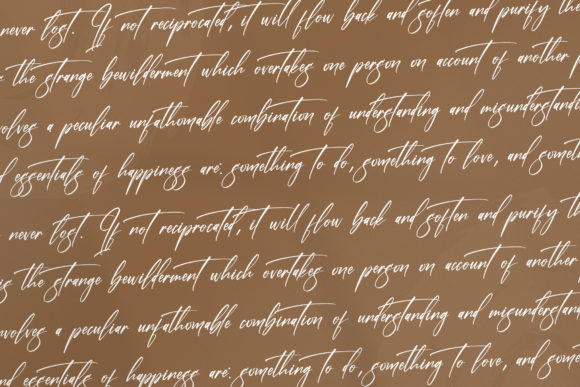 never lost. If not reciprocated, it will flow back and soften and purify the
the strange bewilderment which overtakes one person on account of another p
volves a peculiar unfathomable combination of understanding and misunderstandi
d essentials of happiness are: something to do, something to love, and someth
never lost. If not reciprocated, it will flow back and soften and purify the
is the strange bewilderment which overtakes one person on account of another
nvolves a peculiar unfathomable combination of understanding and misunderstand
nd essentials of happiness are: something to do, something to love, and some